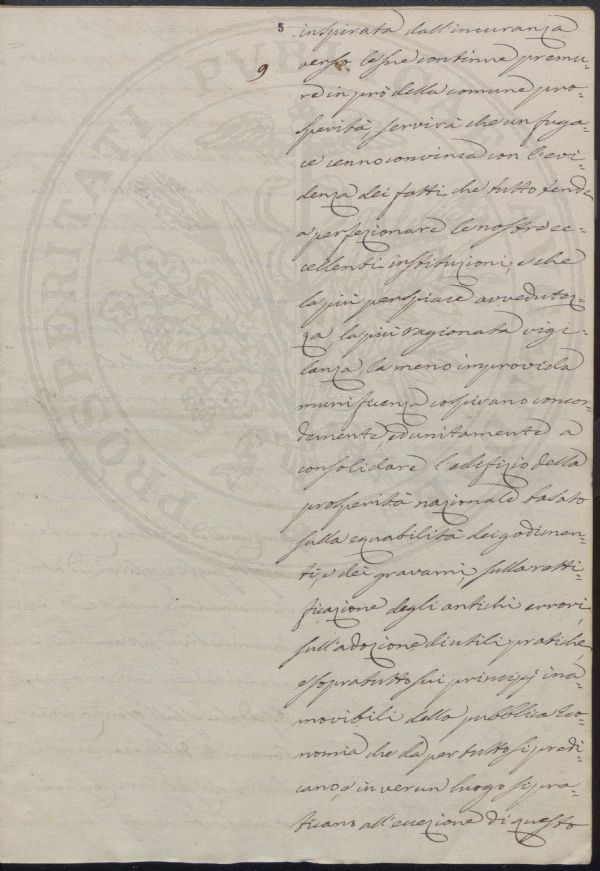 5
9
inspirata dall'incuranza
verso le sue continue premu=
re in prò della comune pro=
sperità, servirà che un fuga=
ce cenno convinca con l'evi=
denza dei fatti che tutto tende
a perfezionare le nostre ec=
cellenti instituzioni, e che
la più perspicace avvedutez=
za, la più ragionata vigi=
lanza, la meno improvida
munificenza cospirano concor=
demente ed unitamente a
consolidare l'edifizio della
prosperità nazionale basato
sulla equabilità dei godimen=
ti, e dei gravami, sulla retti=
ficazione degli antichi errori,
sull'adozione di utili pratiche,
e sopratutto sui principj ina=
movibili della pubblica Eco=
nomia che da per tutto si predi=
cano, e in verun luogo si pra=
ticano all'eccezione di questo
PROSPERITATI PUBLICA